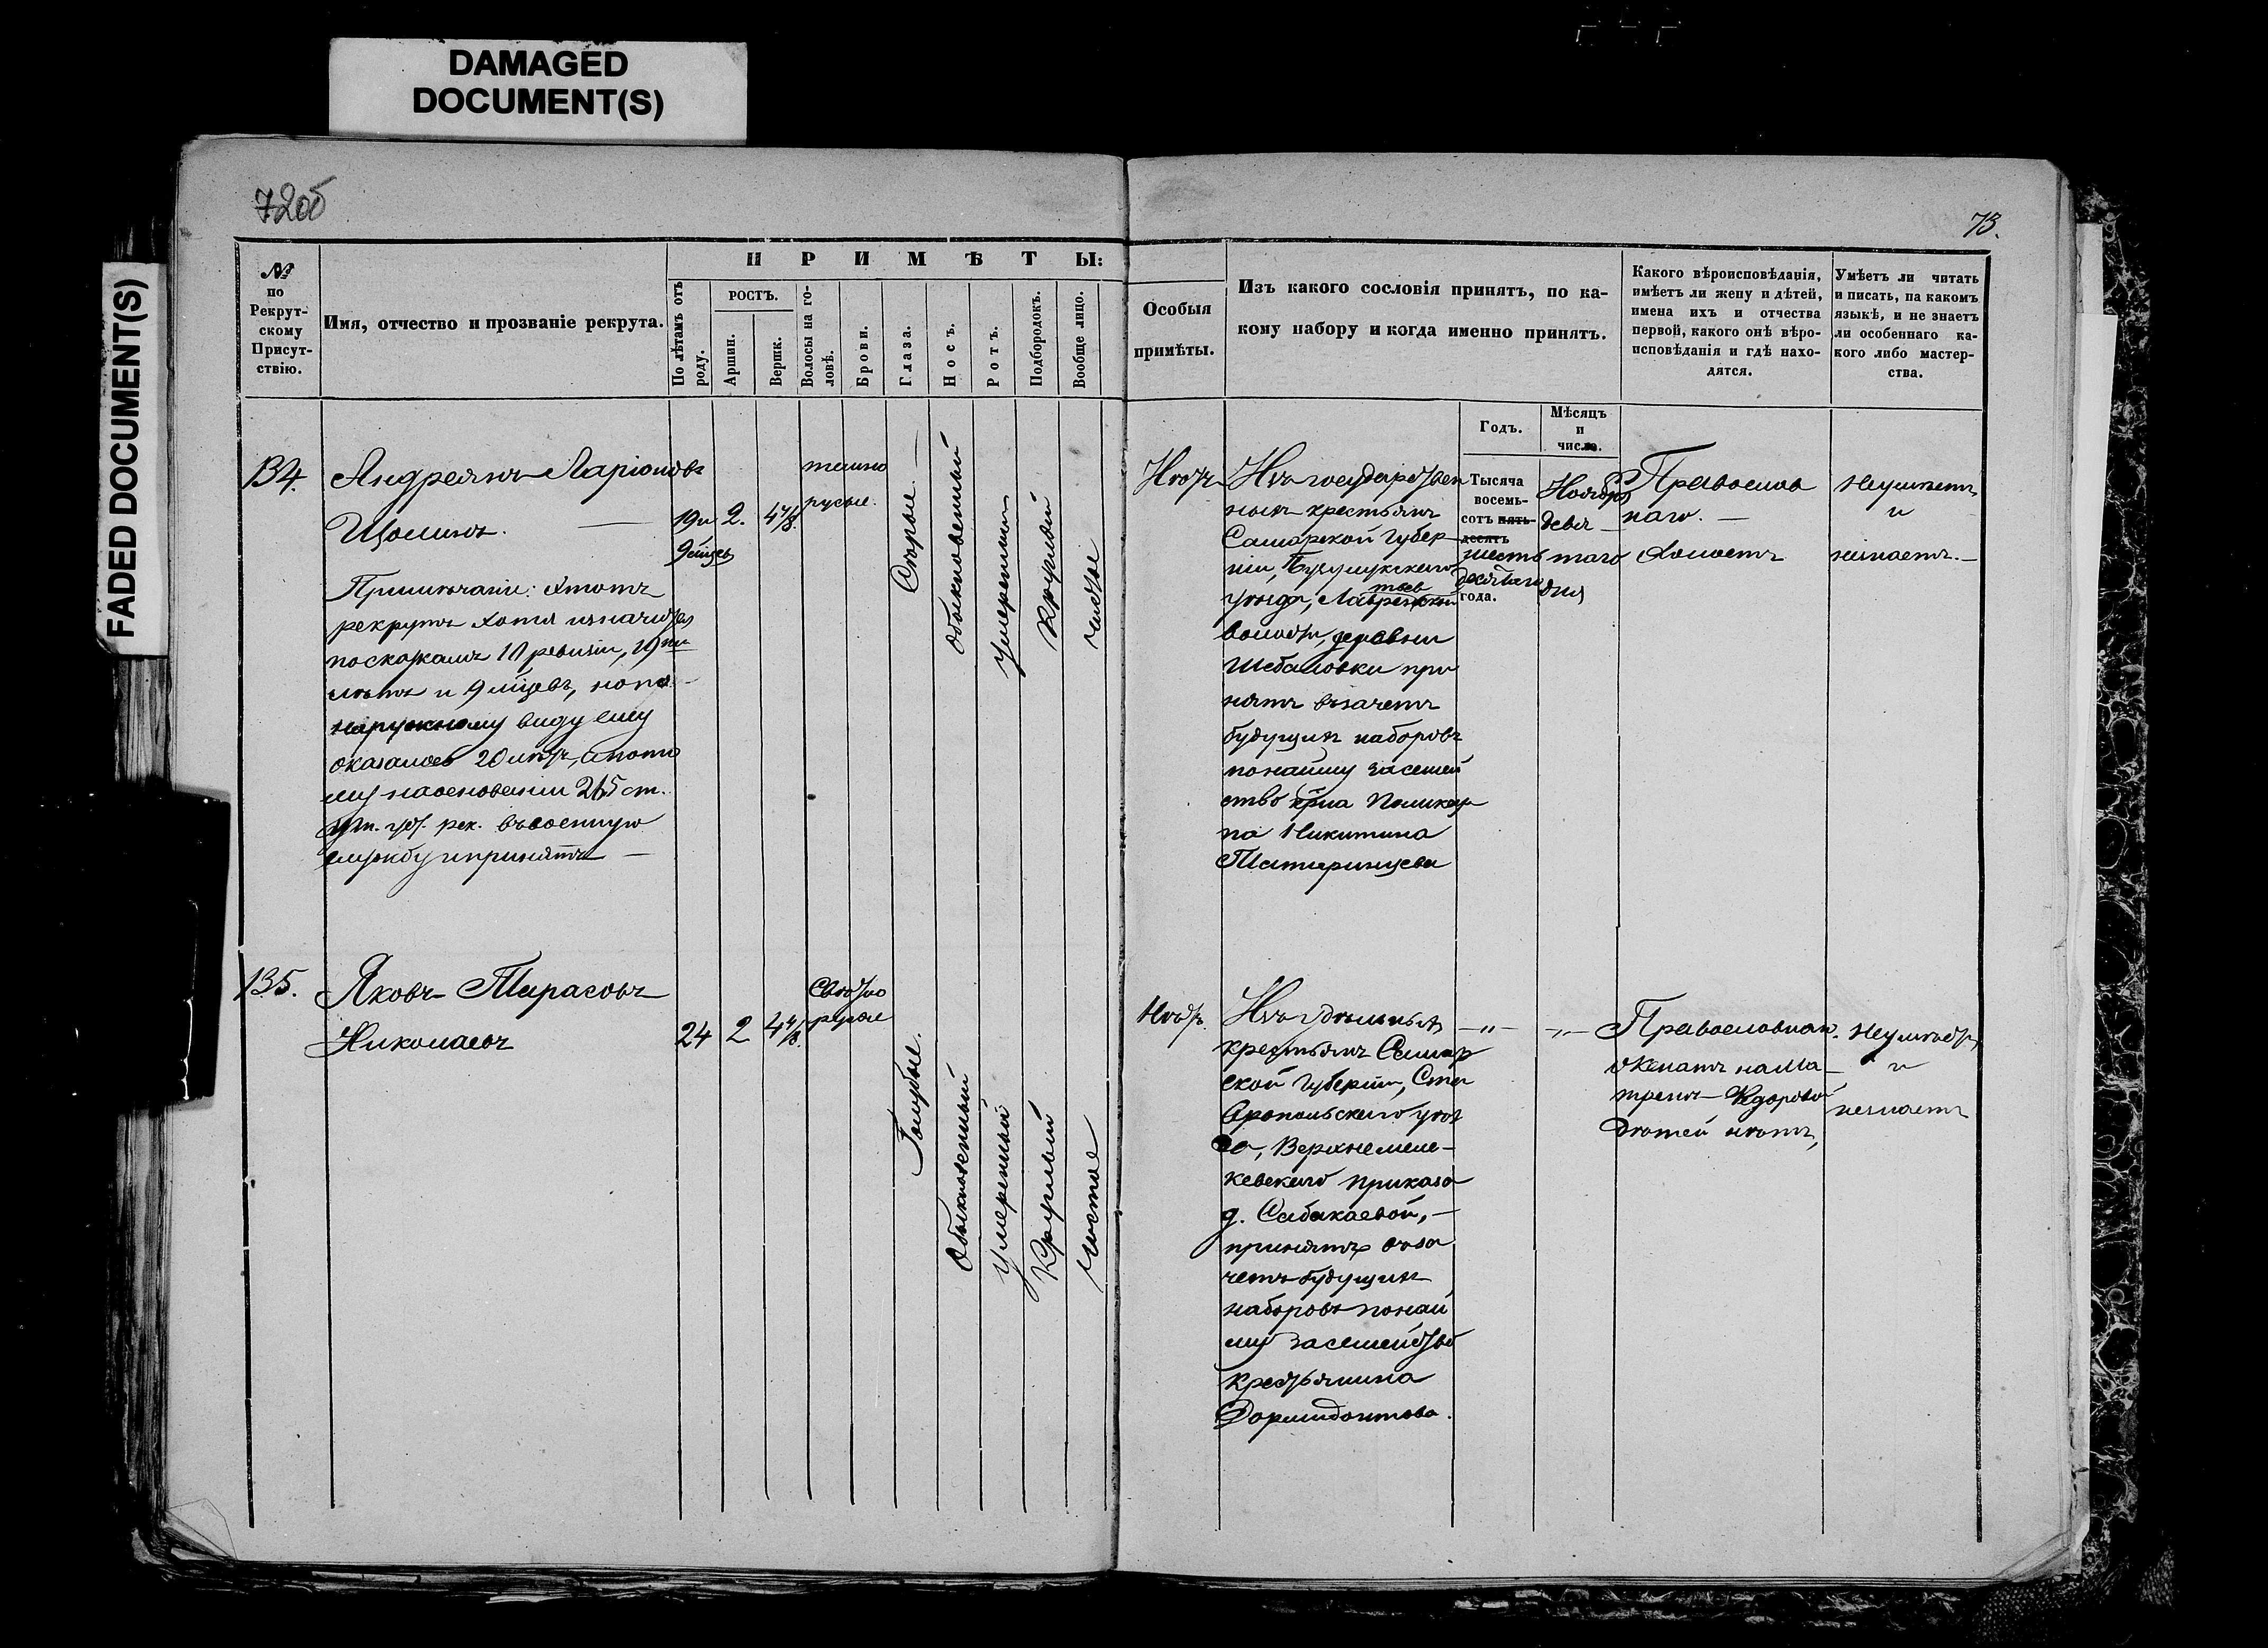 DAMAGED
DOCUMENT(S)
FADED DOCUMENT(S)
72об
73.
№
по
Рекрут-
скому
Присут-
ствію.
Имя, отчество и прозваніе рекрута.
ПРИМѢТЫ:
По лѣтамъ отъ
роду.
РОСТЪ.
Аршин.
Вершк.
Волосы на го-
ловѣ.
Брови.
Глаза.
Носъ.
Ротъ.
Подбородокъ.
Вообще лицо.
Особыя
примѣты.
Изъ какого сословія принятъ, по ка-
кому набору и когда именно принятъ.
Какого вѣроисповѣданія,
имѣетъ ли жену и дѣтей,
имена ихъ и отчества
первой, какого онѣ вѣро-
исповѣданія и гдѣ нахо-
дятся.
Умѣетъ ли читать
и писать, на какомъ
языкѣ, и не знаетъ
ли особеннаго ка-
кого либо мастер-
ства.
Годъ.
Мѣсяцъ
и
число.
134.
Андреянъ Ларіоновъ
Примѣчаніе: Этотъ
рекрутъ хотя и значится
по сказкамъ 10 ревизіи, 19ти
лѣтъ и 9 мѣцевъ, но по
наружному виду ему
оказалось 20 лѣтъ, а пото
му на основаніи 265 ст.
уст. рек. въ военную
службу и принятъ —
19 и
9 мѣцев
2.
4 4/8.
темно
русые.
Сѣрые.
обыкновенный
умеренный
Круглый
чистое
Нѣтъ
Изъ государствен
ныхъ крестьянъ
Самарской Губер
ніи, Бузулукскаго
уѣзда, Лаврен
тьев
волости, деревни
Шебаловки при
нятъ въ зачетъ
будущихъ наборовъ
по найму за семей
ство кр̃на Поликар
па Никитина
Татаринцева
Тысяча
восемь-
сотъ пять-
десятъ
шесть
десятаго
года.
Ноября
девя
таго
дня
Православ
наго. —
Холостъ
Неумѣетъ
и
незнаетъ. —
135.
Яковъ Тарасовъ
Николаевъ
24
2
4 4/8.
Свѣтло
русые
Голубые.
Обыкновенный
умеренный
Круглый
чистое
Нѣтъ.
Изъ удѣльныхъ
крестьянъ Самар
ской Губерніи, Ста
вропольскаго уѣз
да, Верхнемеле-
кесскаго приказа
д. Сабакаевой, —
принятъ въ за
четъ будущихъ
наборовъ по най
му за семейство
крестьянина
Дормидонтова.
— " —
— " —
Православнаго.
Женатъ на Ма
тренѣ Федоровой
Дѣтей нѣтъ,
Неумѣетъ
и
незнаетъ